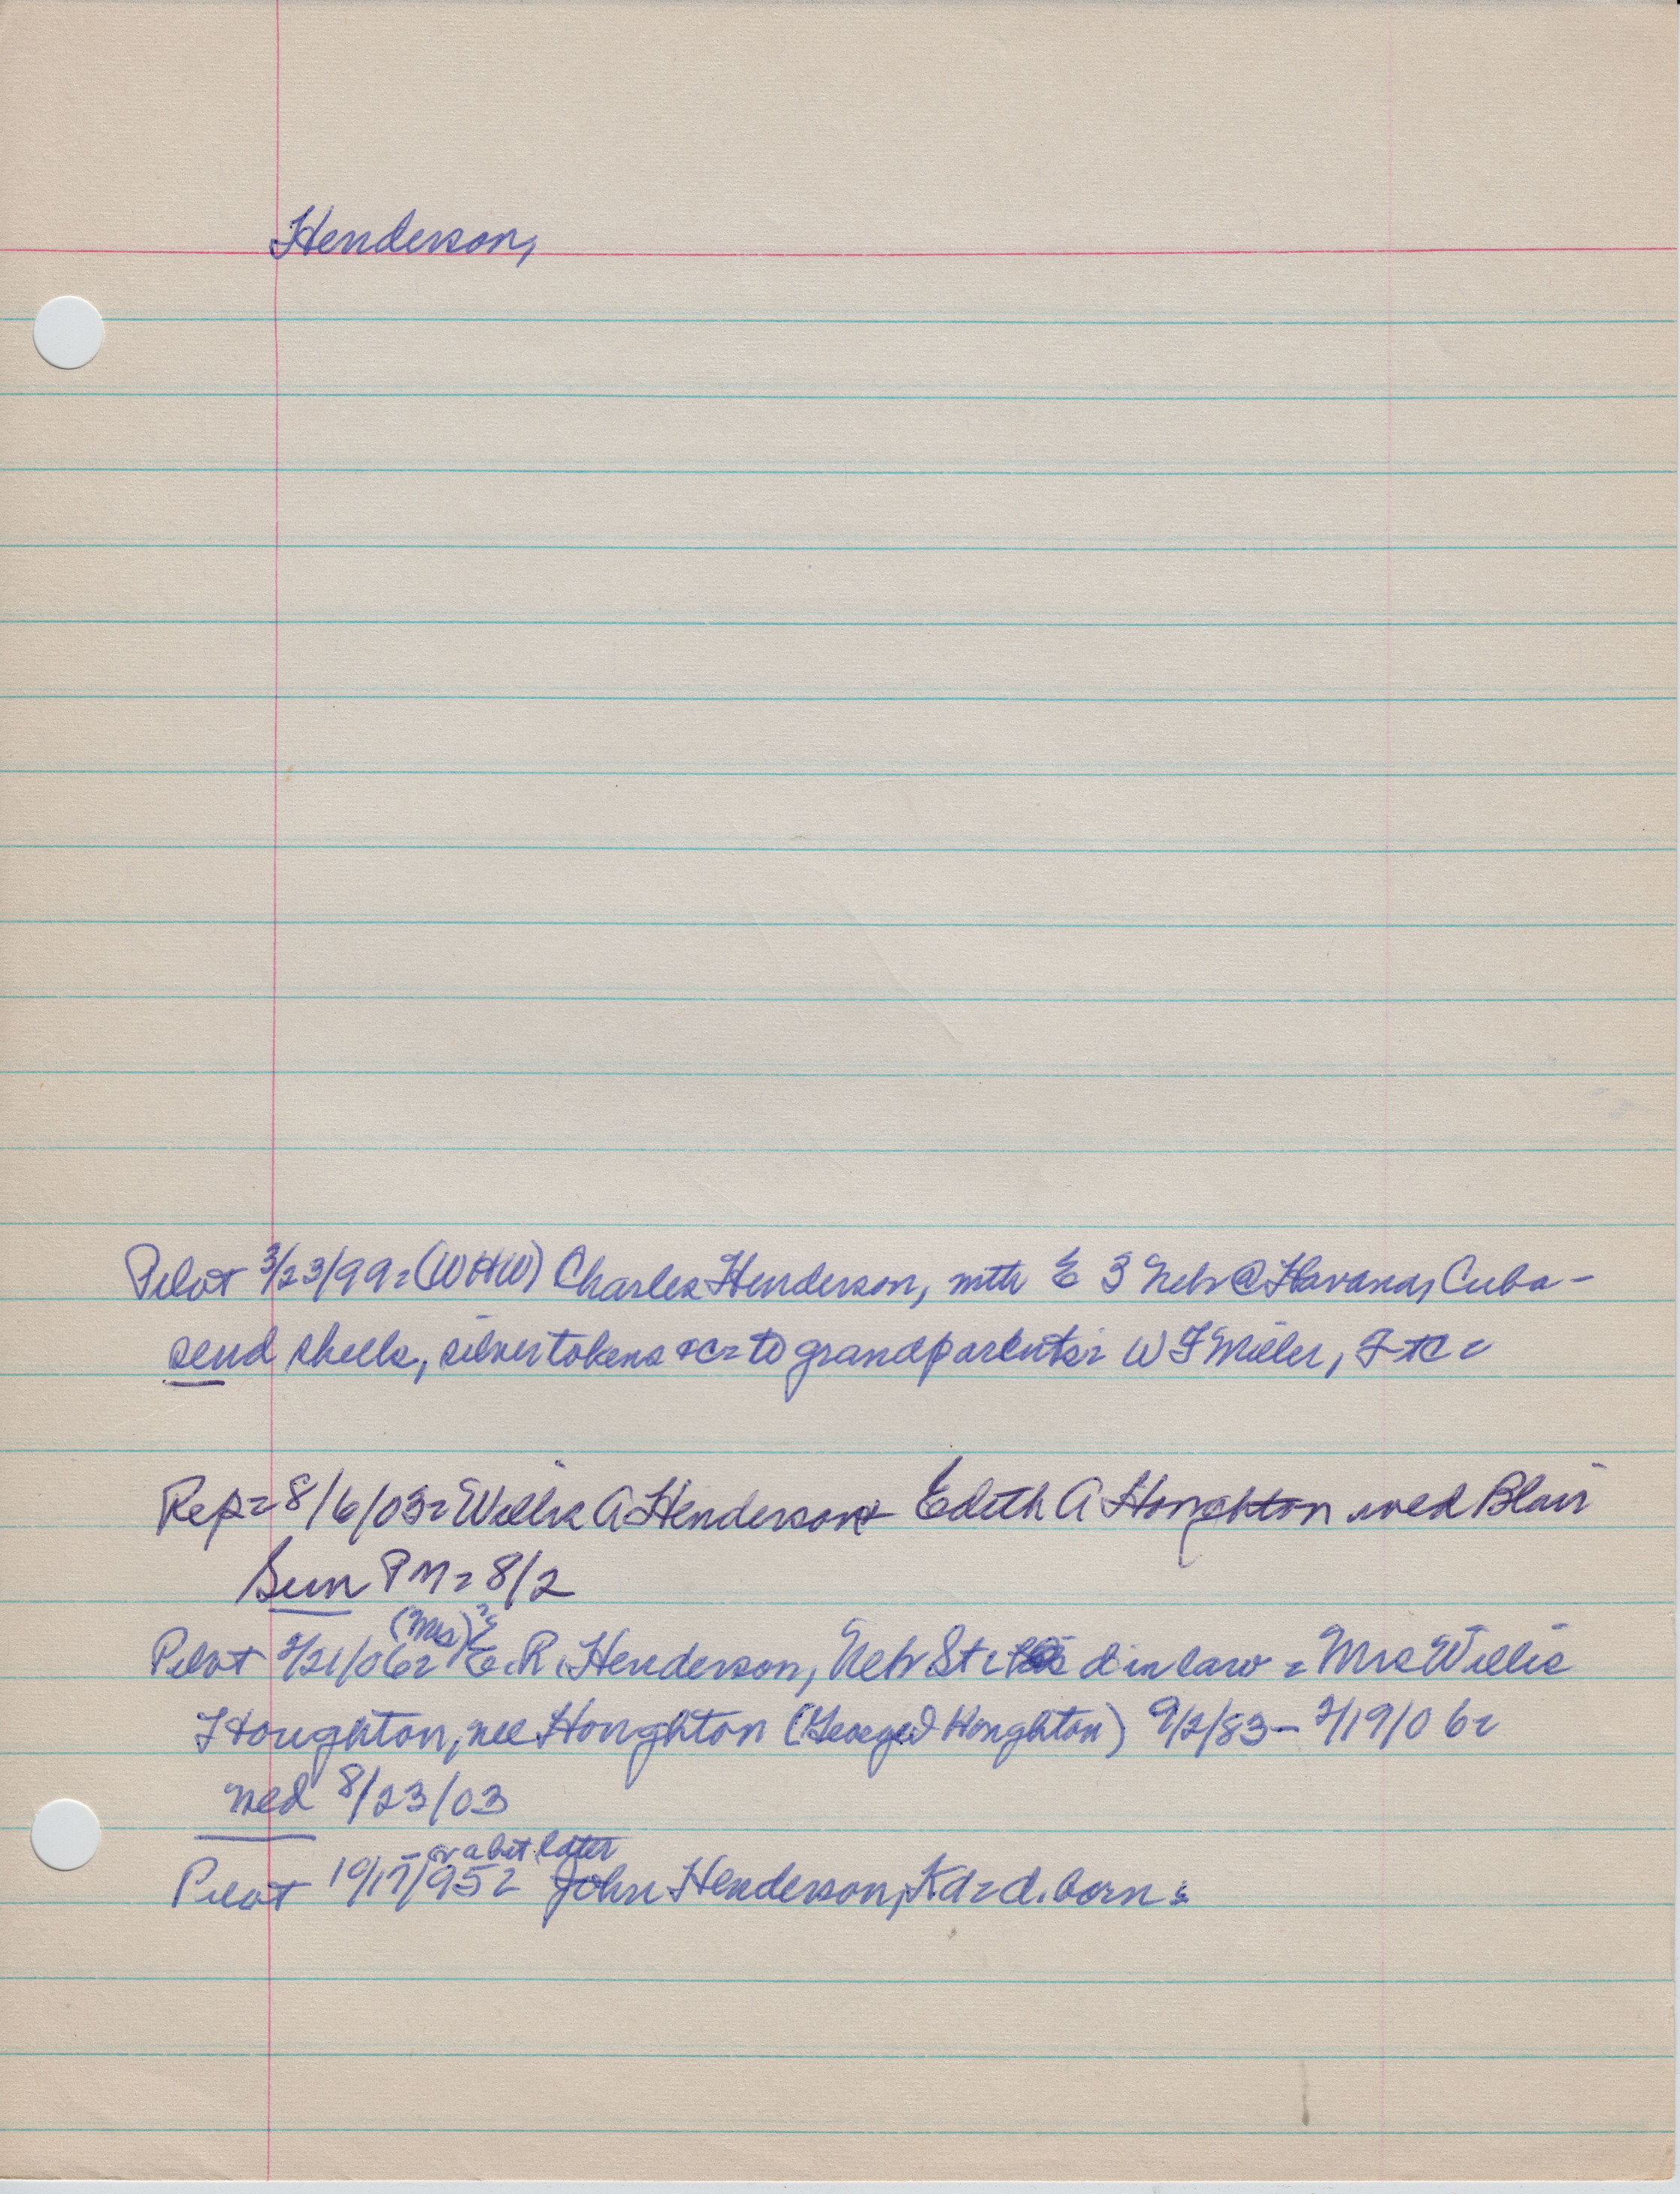 Henderson,
Pilot 3/23/99 = (WHW) Charles Henderson, with E 3 Neb @ Havana, Cuba -
send shells, silver tokens &c = to grandparents = W F Miller, Ft C =
Rep = 8/6/03 = Willis A Henderson + Edith A Houghton wed Blair
Sun PM = 8/2
(Mrs) ?
Pilot 2/21/06 = E. R. Henderson, Neb St = d in law = Mrs Willis
Houghton, nee Houghton (George Houghton) 9/2/83 - 2/19/06 =
wed 8/23/03
- or a bit later
Pilot 10/17/95 = John Henderson, Kd = d. born =